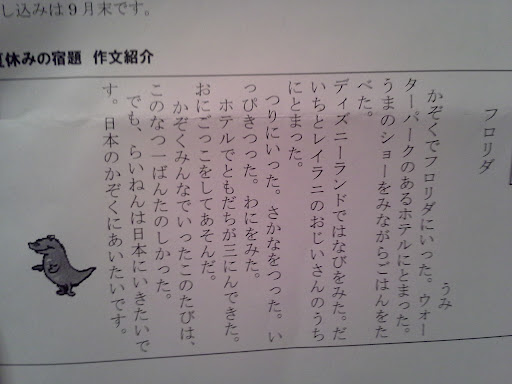 し込みは９月末です。
休みの宿題 作文紹介
フロリダ
うみ
かぞくでフロリダにいった。ウォー
ターパークのあるホテルにとまった。
うまのショーをみながらごはんをた
べた。
ディズニーランドではなびをみた。だ
いちとレイラニのおじいさんのうち
にとまった。
つりにいった。さかなをつった。い
っぴきつった。わにをみた。
ホテルでともだちが三にんできた。
おにごっこをしてあそんだ。
かぞくみんなでいったこのたびは、
このなつ一ばんたのしかった。
でも、らいねんは日本にいきたいで
す。日本のかぞくにあいたいです。